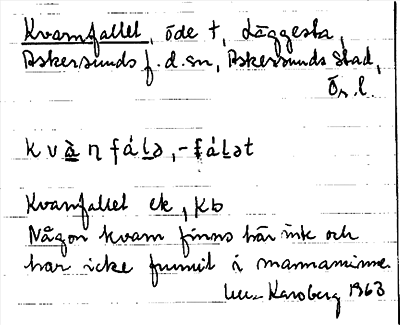 Kvarnfallet, öde t, Läggesta,
Askersunds f.d.sn, Askersunds stad,
Ör.l.
Kvarnfallet ek, Kb
Någon kvarn finns här int och
har icke funnit i mannaminne.
Karsberg 1963